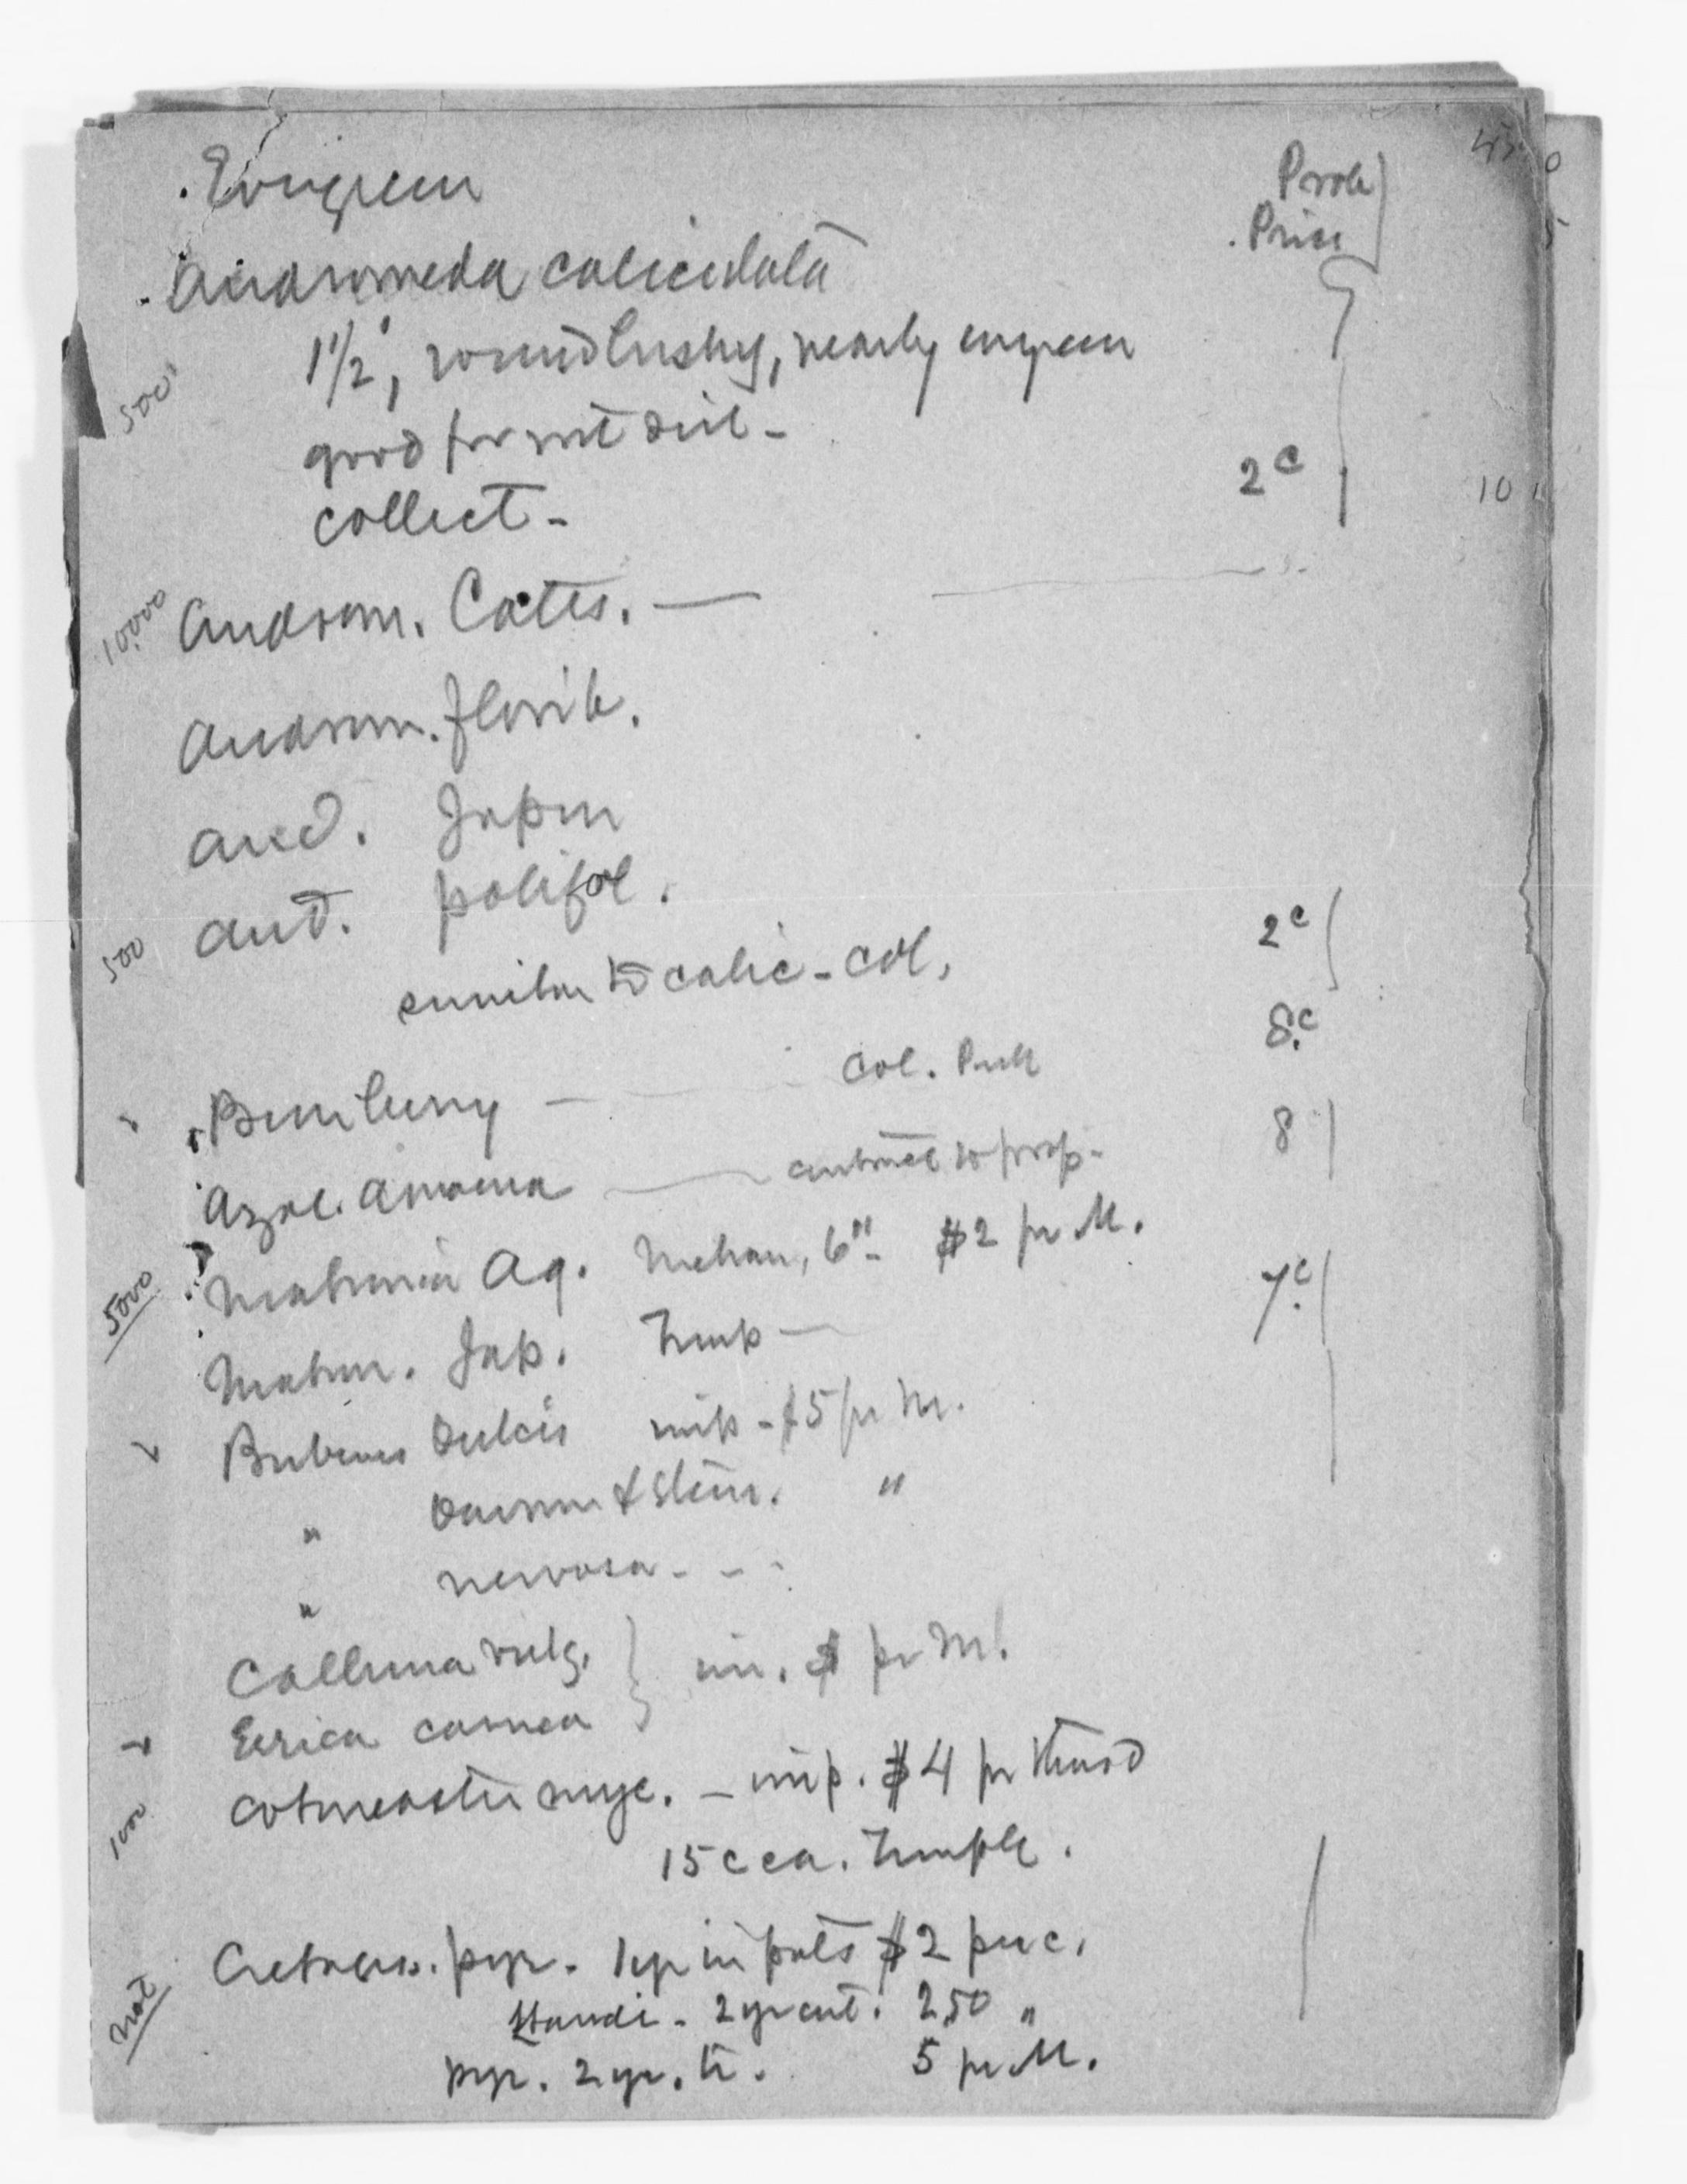 Evergreen
Prob
Price
Andromeda caliculata
1 1/2', round bushy, nearly evergreen
500
good for wet soil -
collect -
2c
10
10,000 Androm. Cates. —
Androm. florib.
And. Japon
500 And. polifol.
similar to calic - col.
2c
8c
Col. Pull
Azal. amoena — contract to prop.
8
5000 Mahonia Aq. Mehan, 6" - $2 pr M.
7c
Mahon. Jap. Temp —
Berberis dulcis imp - $5 pr M.
" Darwin & Sten. "
" nervosa - - -
Calluna vulg. } im. $ pr M.
Erica carnea }
1000 Cotoneaster myc. - imp. $4 pr thousd
15c ea. Temple.
not Crataegus. pyr. 1 yr in pots $2 per c.
Landi - 2 yr cut. 2.50 "
pyr. 2 yr. tr. 5 pr M.